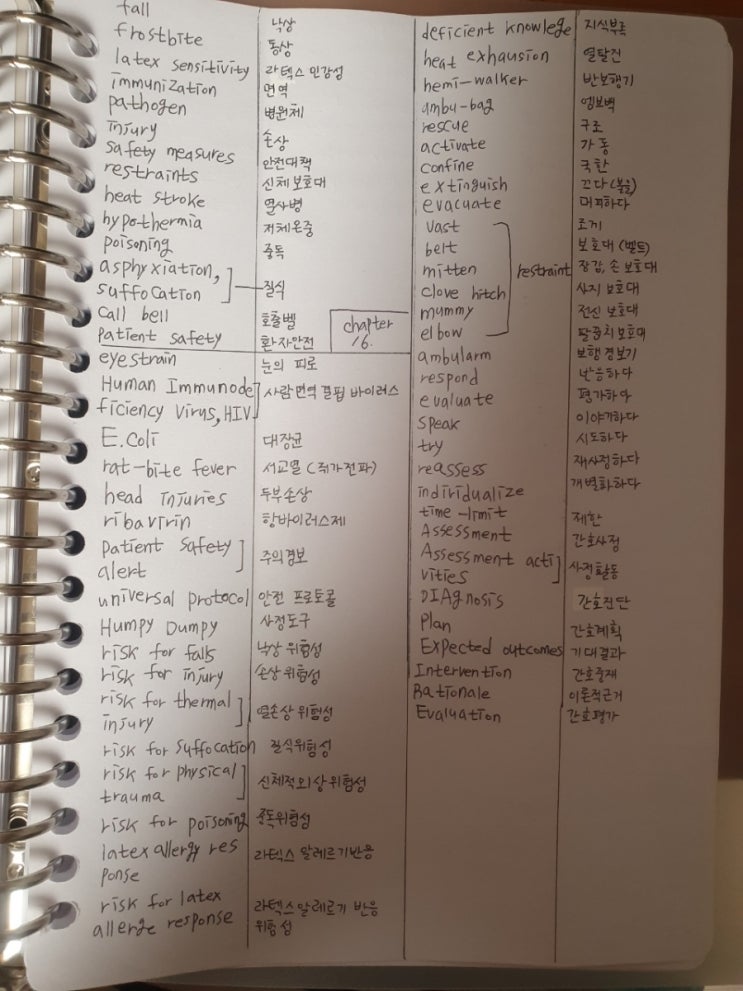 fall 낙상
frostbite 동상
latex sensitivity 라텍스 민감성
immunization 면역
pathogen 병원체
injury 손상
safety measures 안전대책
restraints 신체 보호대
heat stroke 열사병
hypothermia 저체온증
poisoning 중독
asphyxiation,
suffocation 질식
call bell 호출벨
patient safety 환자안전
chapter
16.
eyestrain 눈의 피로
Human Immunode
ficiency virus, HIV 사람면역결핍 바이러스
E.coli 대장균
rat-bite fever 서교열 (쥐가전파)
head injuries 두부손상
ribavirin 항바이러스제
patient safety
alert 주의경보
universal protocol 안전 프로토콜
Humpy Dumpy 사정도구
risk for falls 낙상 위험성
risk for injury 손상 위험성
risk for thermal
injury 열손상 위험성
risk for suffocation 질식위험성
risk for physical
trauma 신체적외상 위험성
risk for poisoning 중독위험성
latex allergy res
ponse 라텍스 알레르기반응
risk for latex
allerge response 라텍스알레르기 반응
위험성
deficient knowlege 지식부족
heat exhausion 열탈진
hemi-walker 반보행기
ambu-bag 엠보백
rescue 구조
activate 가동
confine 국한
extinguish 끄다 (불을)
evacuate 대피하다
vast 조끼
belt 보호대 (벨트)
mitten 장갑, 손 보호대
restraint
clove hitch 사지 보호대
mummy 전신 보호대
elbow 팔꿈치보호대
ambularm 보행경보기
respond 반응하다
evaluate 평가하다
speak 이야기하다
try 시도하다
reassess 재사정하다
individualize 개별화하다
time-limit 제한
Assessment 간호사정
Assessment acti
vities 사정활동
DIAgnosis 간호진단
Plan 간호계획
Expected outcomes 기대결과
Intervention 간호중재
Rationale 이론적근거
Evaluation 간호평가